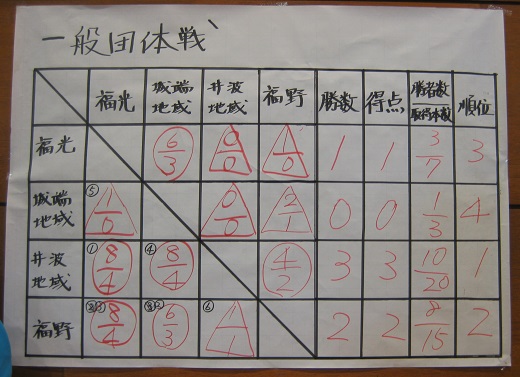 一般団体戦
福光 城端地域 井波地域 福野 勝数 得点 勝者数/取得本数 順位
福光 6/3 0/0 1/0 1 1 3/7 3
城端地域 ⑤ 1/0 0/0 2/1 0 0 1/3 4
井波地域 ① 8/4 ④ 8/4 4/2 3 3 10/20 1
福野 8/4 6/3 ⑥ 1/1 2 2 8/15 2